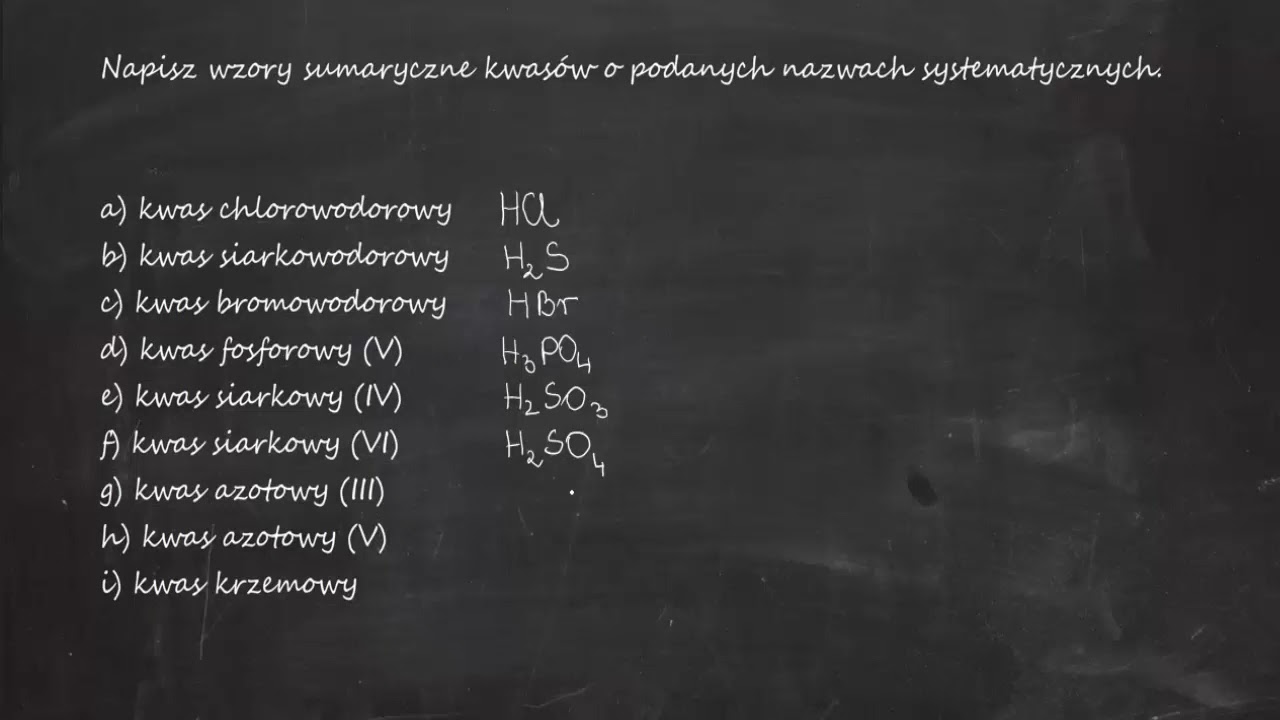 Napisz wzory sumaryczne kwasów o podanych nazwach systematycznych.
a) kwas chlorowodorowy HCl
b) kwas siarkowodorowy H₂S
c) kwas bromowodorowy HBr
d) kwas fosforowy (V) H₃PO₄
e) kwas siarkowy (IV) H₂SO₃
f) kwas siarkowy (VI) H₂SO₄
g) kwas azotowy (III)
h) kwas azotowy (V)
i) kwas krzemowy